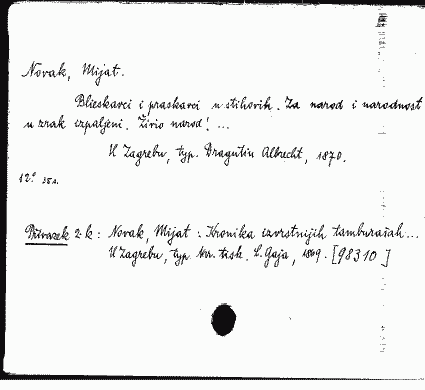 Novak, Mijat.
Blieskavci i praskavci u stihovih. Za narod i narodnost
u zrak izpaljeni. Živio narod! ...
U Zagrebu, typ. Dragutin Albrecht, 1870.
12° 32 s.
Privezek 2. k: Novak, Mijat: Kronika izvrstnijih tamburašah...
U Zagrebu, typ. tisk. L. Gaja, 1869. [98310]